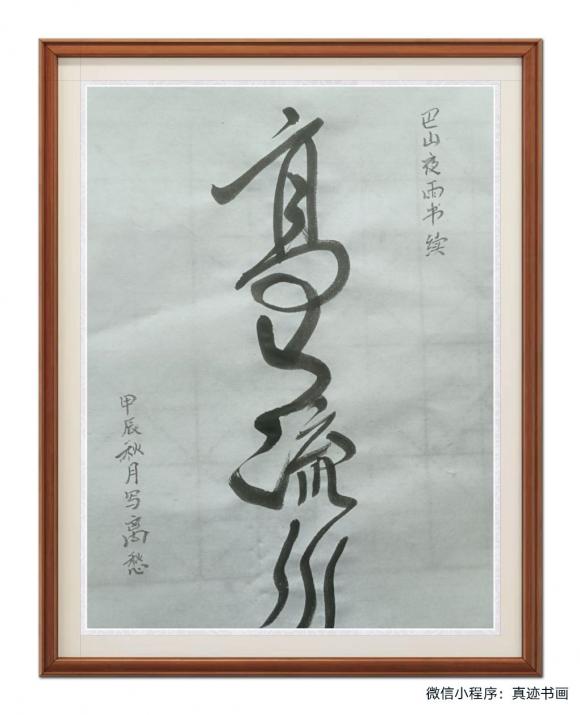 巴山夜雨书续
高山流川
甲辰秋月写离愁
微信小程序：真迹书画